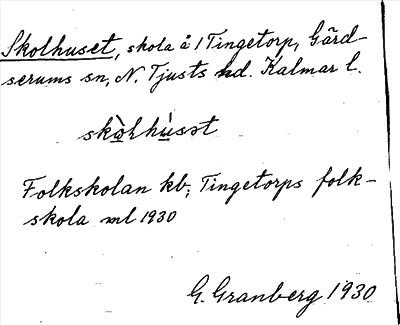 Skolhuset, skola å 1 Tingetorp, Gärd-
serums sn, N. Tjusts hd. Kalmar l.
skòlhúsət
Folkskolan kb; Tingetorps folk-
skola ml 1930
G. Granberg 1930